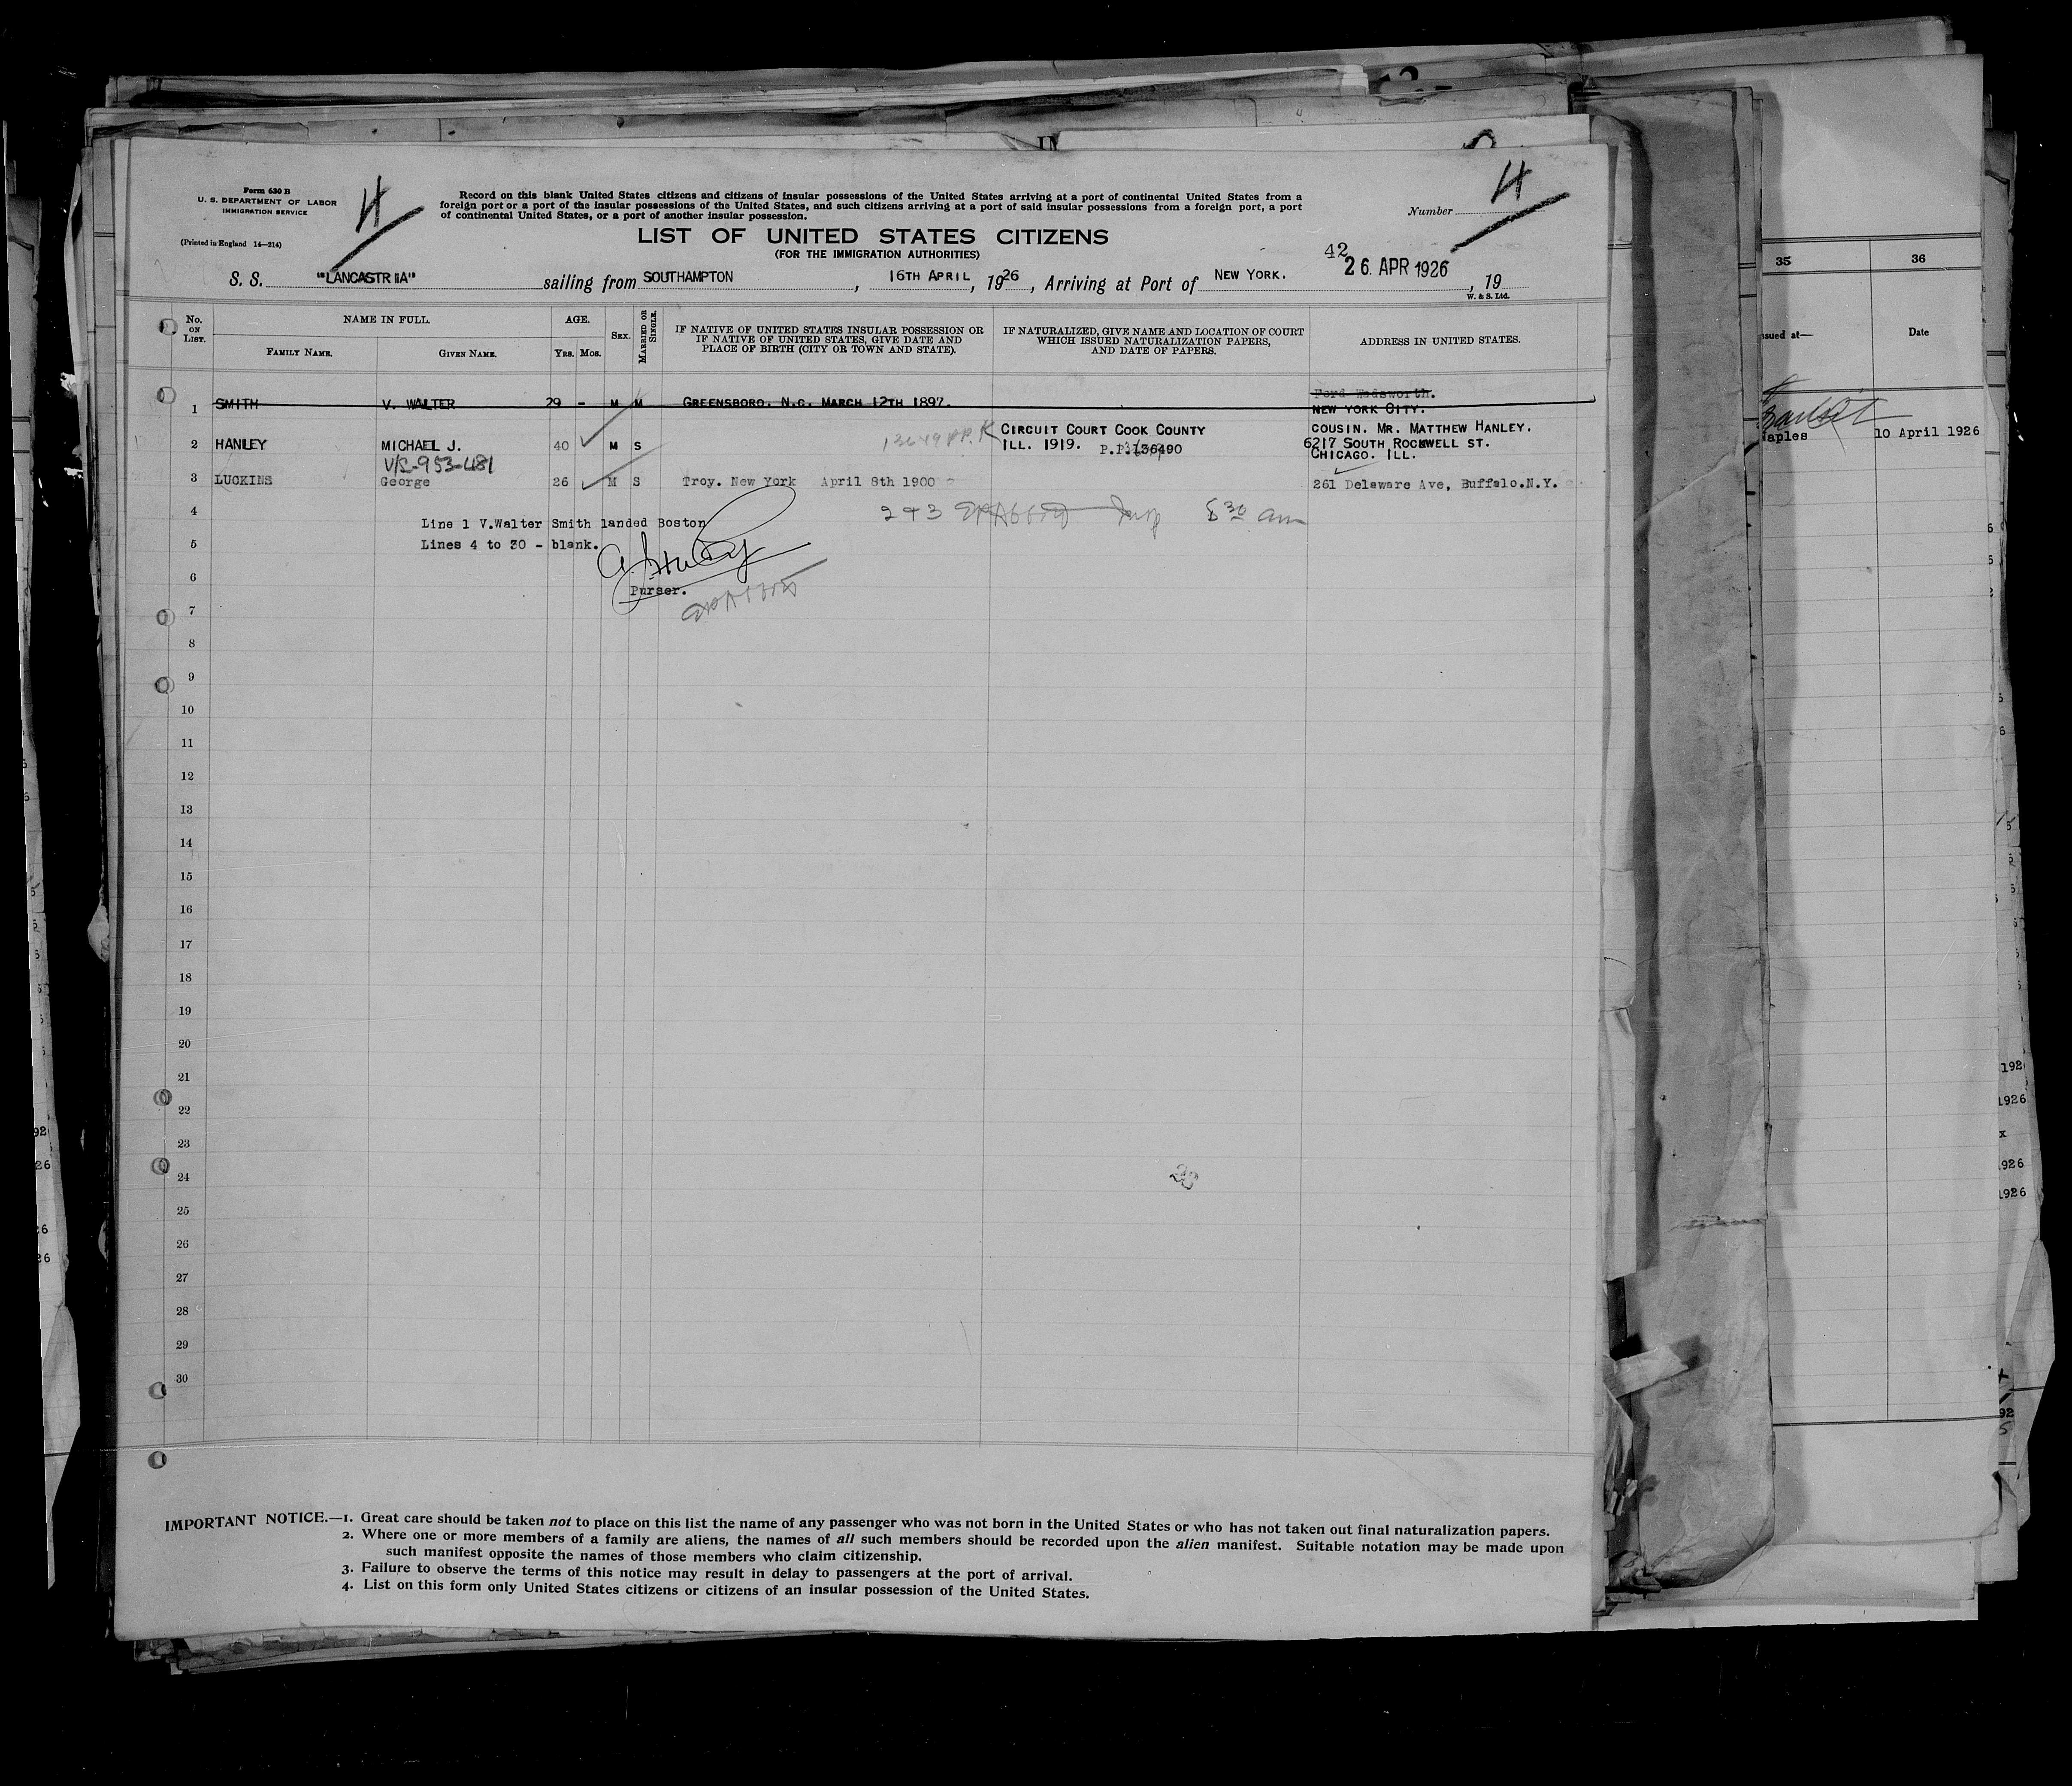 Form 630 B
U. S. DEPARTMENT OF LABOR
IMMIGRATION SERVICE
(Printed in England 14—214)
4
Record on this blank United States citizens and citizens of insular possessions of the United States arriving at a port of continental United States from a
foreign port or a port of the insular possessions of the United States, and such citizens arriving at a port of said insular possessions from a foreign port, a port
of continental United States, or a port of another insular possession.
4
Number
LIST OF UNITED STATES CITIZENS
(FOR THE IMMIGRATION AUTHORITIES)
42
S. S. "LANCASTRIA" sailing from SOUTHAMPTON, 16TH APRIL, 1926, Arriving at Port of NEW YORK. 26. APR 1926, 19
W. & S. Ltd.
No. ON LIST.
NAME IN FULL.
FAMILY NAME.
GIVEN NAME.
AGE.
YRS. MOS.
SEX.
MARRIED OR SINGLE.
IF NATIVE OF UNITED STATES INSULAR POSSESSION OR
IF NATIVE OF UNITED STATES, GIVE DATE AND
PLACE OF BIRTH (CITY OR TOWN AND STATE).
IF NATURALIZED, GIVE NAME AND LOCATION OF COURT
WHICH ISSUED NATURALIZATION PAPERS,
AND DATE OF PAPERS.
ADDRESS IN UNITED STATES.
Ford Wadsworth.
1 SMITH V. WALTER 29 - M M GREENSBORO. N.C. MARCH 12TH 1897. NEW YORK CITY.
CIRCUIT COURT COOK COUNTY COUSIN. MR. MATTHEW HANLEY.
2 HANLEY MICHAEL J. 40 M S ILL. 1919. P.P. 6217 SOUTH ROCKWELL ST.
CHICAGO. ILL.
V/L-953-481
3 LUCKINS George 26 M S Troy. New York April 8th 1900 261 Delaware Ave, Buffalo.N.Y.
4 2 & 3 Insp 8 30 am
Line 1 V.Walter Smith landed Boston
5 Lines 4 to 30 - blank.
6
Purser.
7
8
9
10
11
12
13
14
15
16
17
18
19
20
21
22
23
24
25
26
27
28
29
30
IMPORTANT NOTICE.—1. Great care should be taken not to place on this list the name of any passenger who was not born in the United States or who has not taken out final naturalization papers.
2. Where one or more members of a family are aliens, the names of all such members should be recorded upon the alien manifest. Suitable notation may be made upon
such manifest opposite the names of those members who claim citizenship.
3. Failure to observe the terms of this notice may result in delay to passengers at the port of arrival.
4. List on this form only United States citizens or citizens of an insular possession of the United States.
35
36
Date
10 April 1926
1926
1926
1926